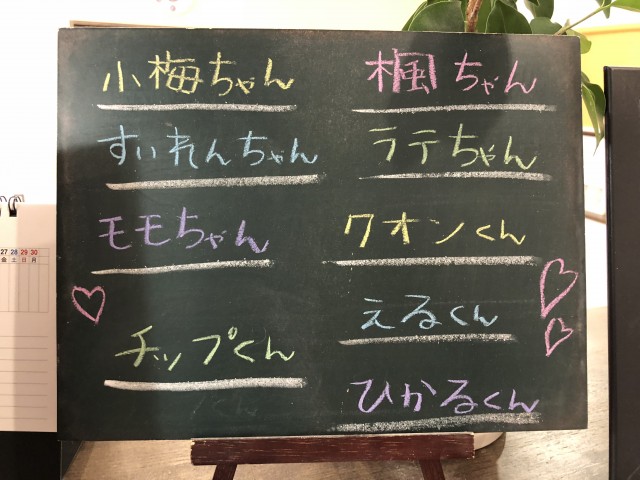 小梅ちゃん
すいれんちゃん
モモちゃん
チップくん
楓ちゃん
ラテちゃん
クオンくん
えるくん
ひかるくん
27 28 29 30
金 土 日 月